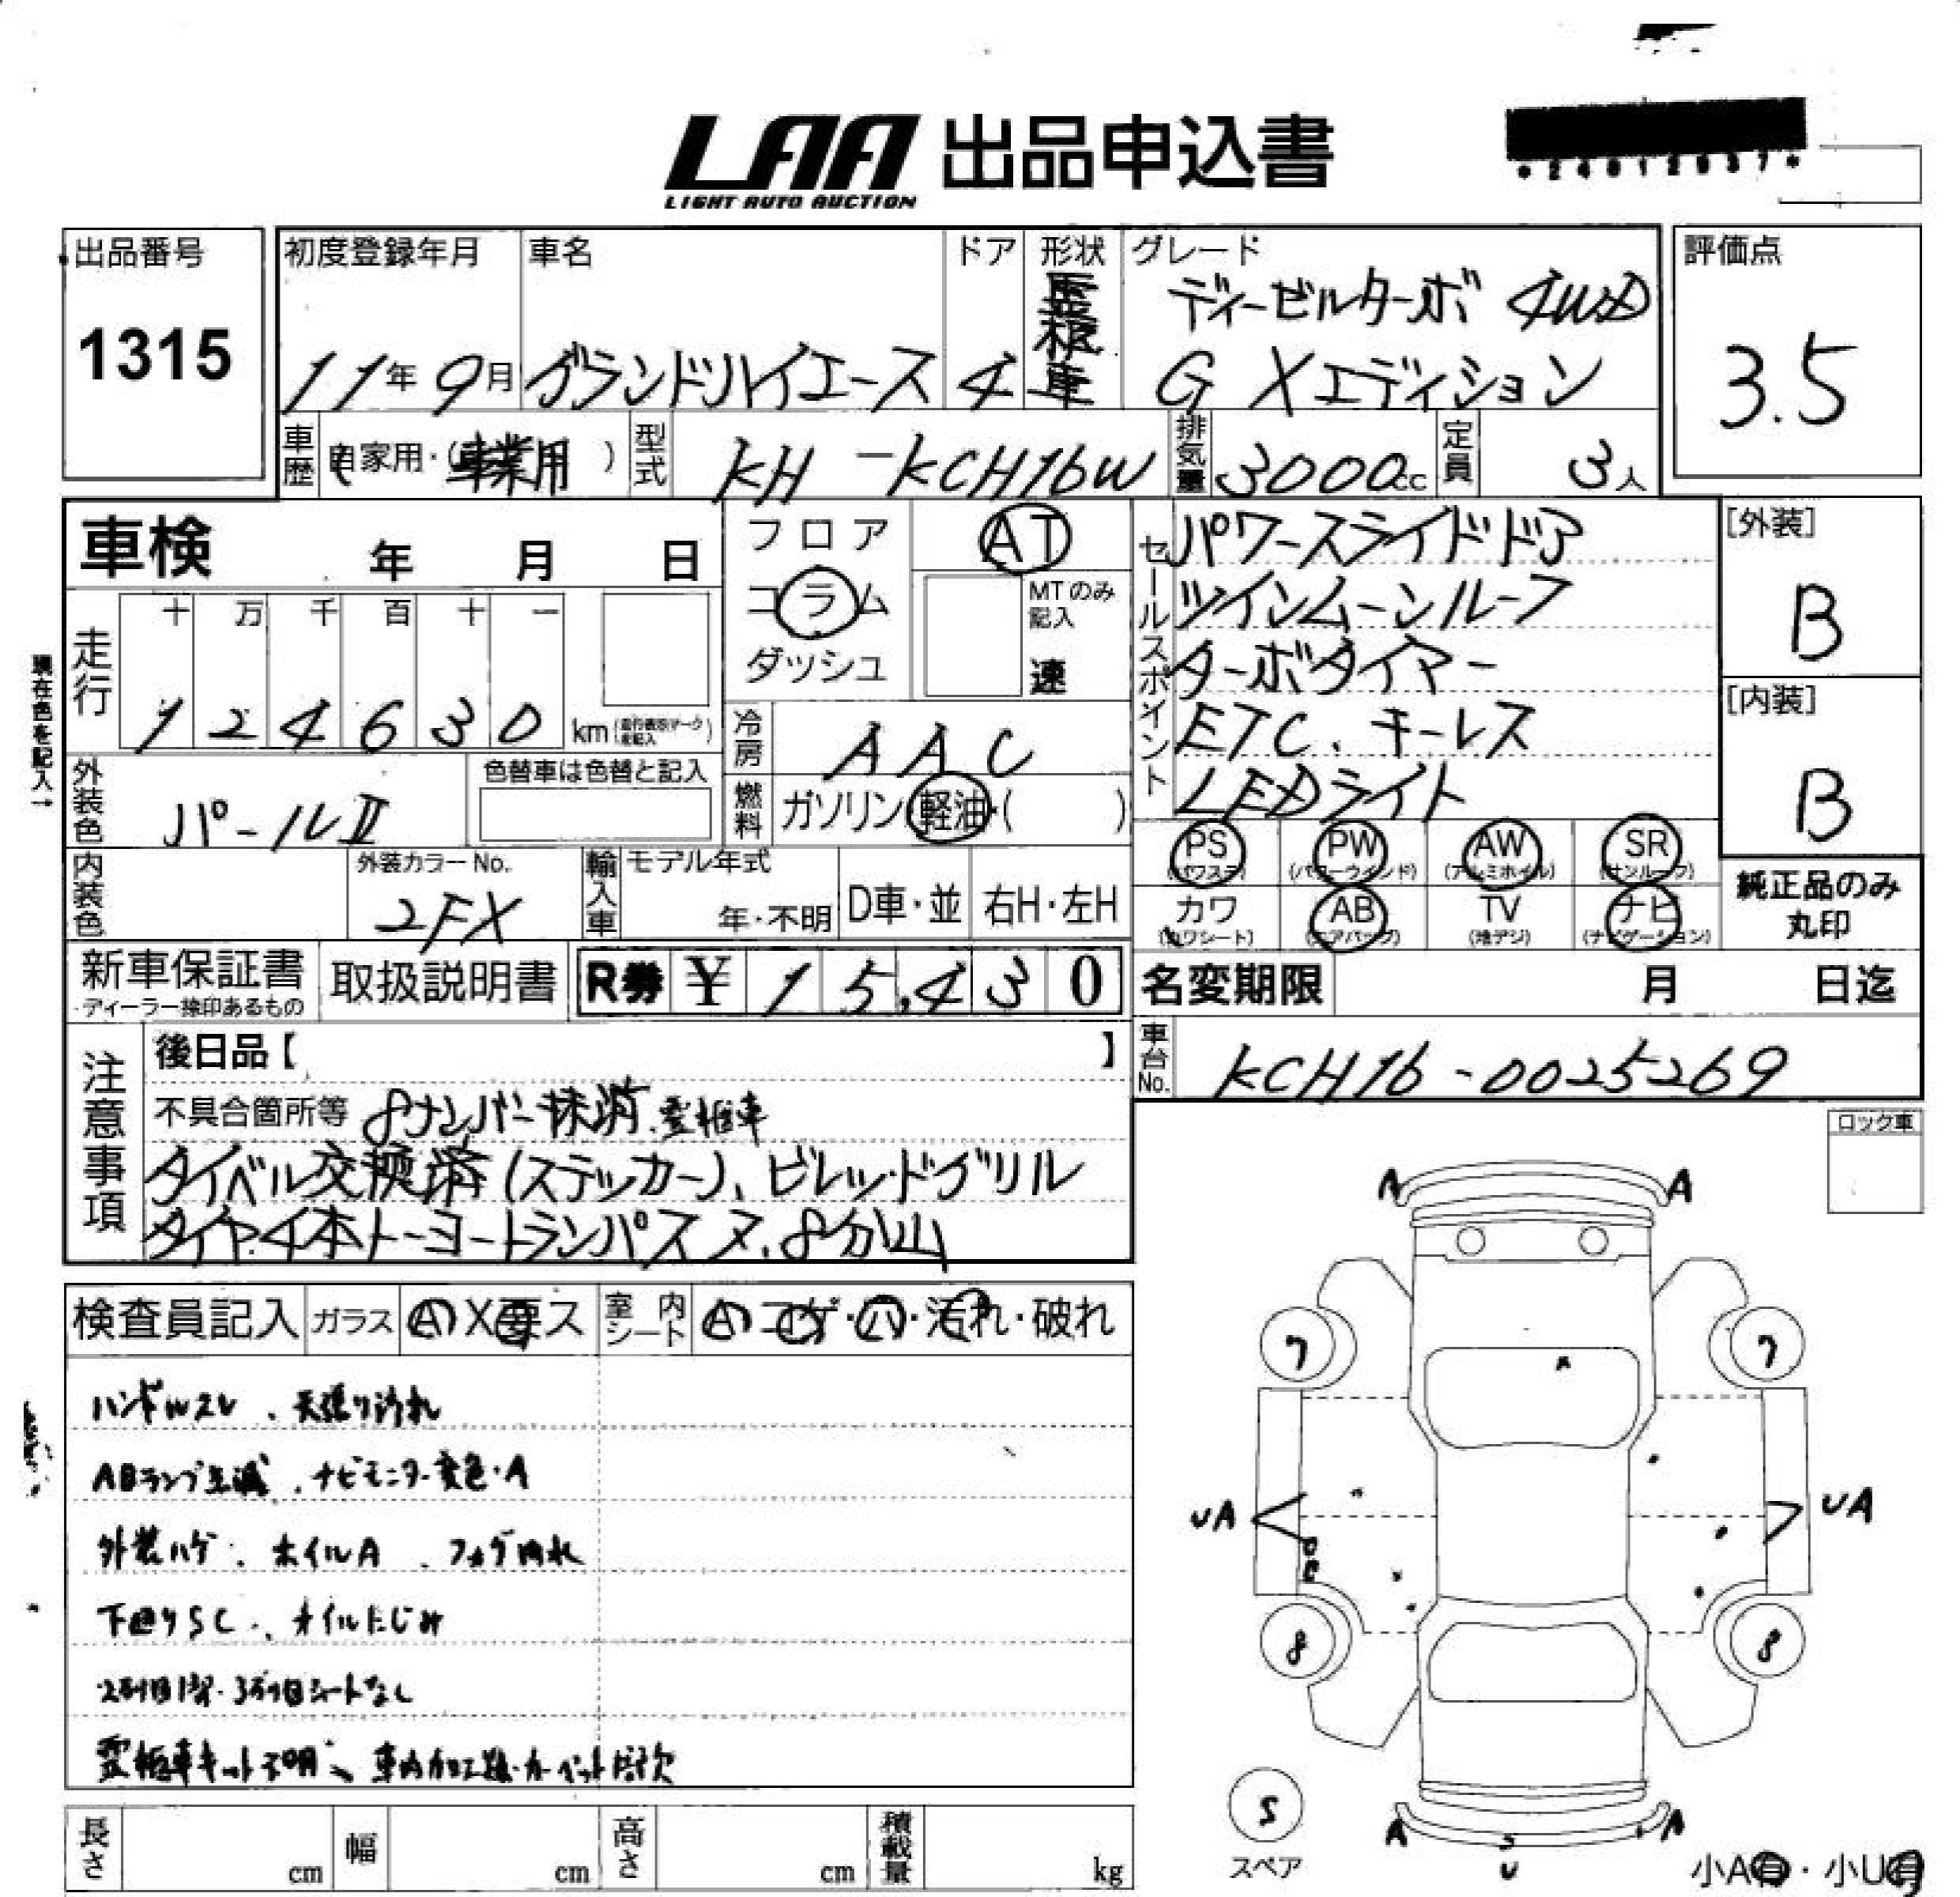 LAA 出品申込書
LIGHT AUTO AUCTION
*24012037*
出品番号
1315
初度登録年月
11年 9月
車名
グランドハイエース
ドア
4
形状
霊柩車
グレード
ディーゼルターボ 4WD
G Xエディション
評価点
3.5
車歴
自家用・(事業用)
型式
KH-KCH16W
排気量
3000cc
定員
3人
車検 年 月 日
フロア
コラム
ダッシュ
AT
MTのみ記入
速
セールスポイント
パワースライドドア
ツインムーンルーフ
ターボタイマー
ETC、キーレス
LEDライト
[外装]
B
[内装]
B
現在色を記入→
走行
十 万 千 百 十 一
1 2 4 6 3 0 km
冷房
AAC
燃料
ガソリン・軽油・( )
外装色
パールⅡ
色替車は色替と記入
内装色
外装カラーNo.
2FX
輸入車
モデル年式
年・不明
D車・並
右H・左H
PS
(パワステ)
PW
(パワーウインド)
AW
(アルミホイル)
SR
(サンルーフ)
カワ
(カワシート)
AB
(エアバッグ)
TV
(地デジ)
ナビ
(ナビゲーション)
純正品のみ
丸印
新車保証書
・ディーラー捺印あるもの
取扱説明書
R券 ¥ 15,430
名変期限 月 日迄
車台No.
KCH16-0025269
注意事項
後日品【 】
不具合箇所等 8ナンバー抹消、霊柩車
タイベル交換済(ステッカー)、ビレットグリル
タイヤ4本トーヨートランパス 8分山
ロック車
検査員記入
ガラス
A・X要ス
室内シート
A・コゲ・穴・汚れ・破れ
ハンドルスレ、天張り汚れ
ABランプ点滅、ナビモニター変色・A
外装ハゲ、ホイルA、フォグ内水
下廻りSC、オイルにじみ
2列目1部・3列目シートなし
霊柩車キット不明、車内加工跡・カーペット欠
A A
7 7
UA UA
8 8
S
スペア
A A
U
小A有・小U有
長さ cm
幅 cm
高さ cm
積載量 kg